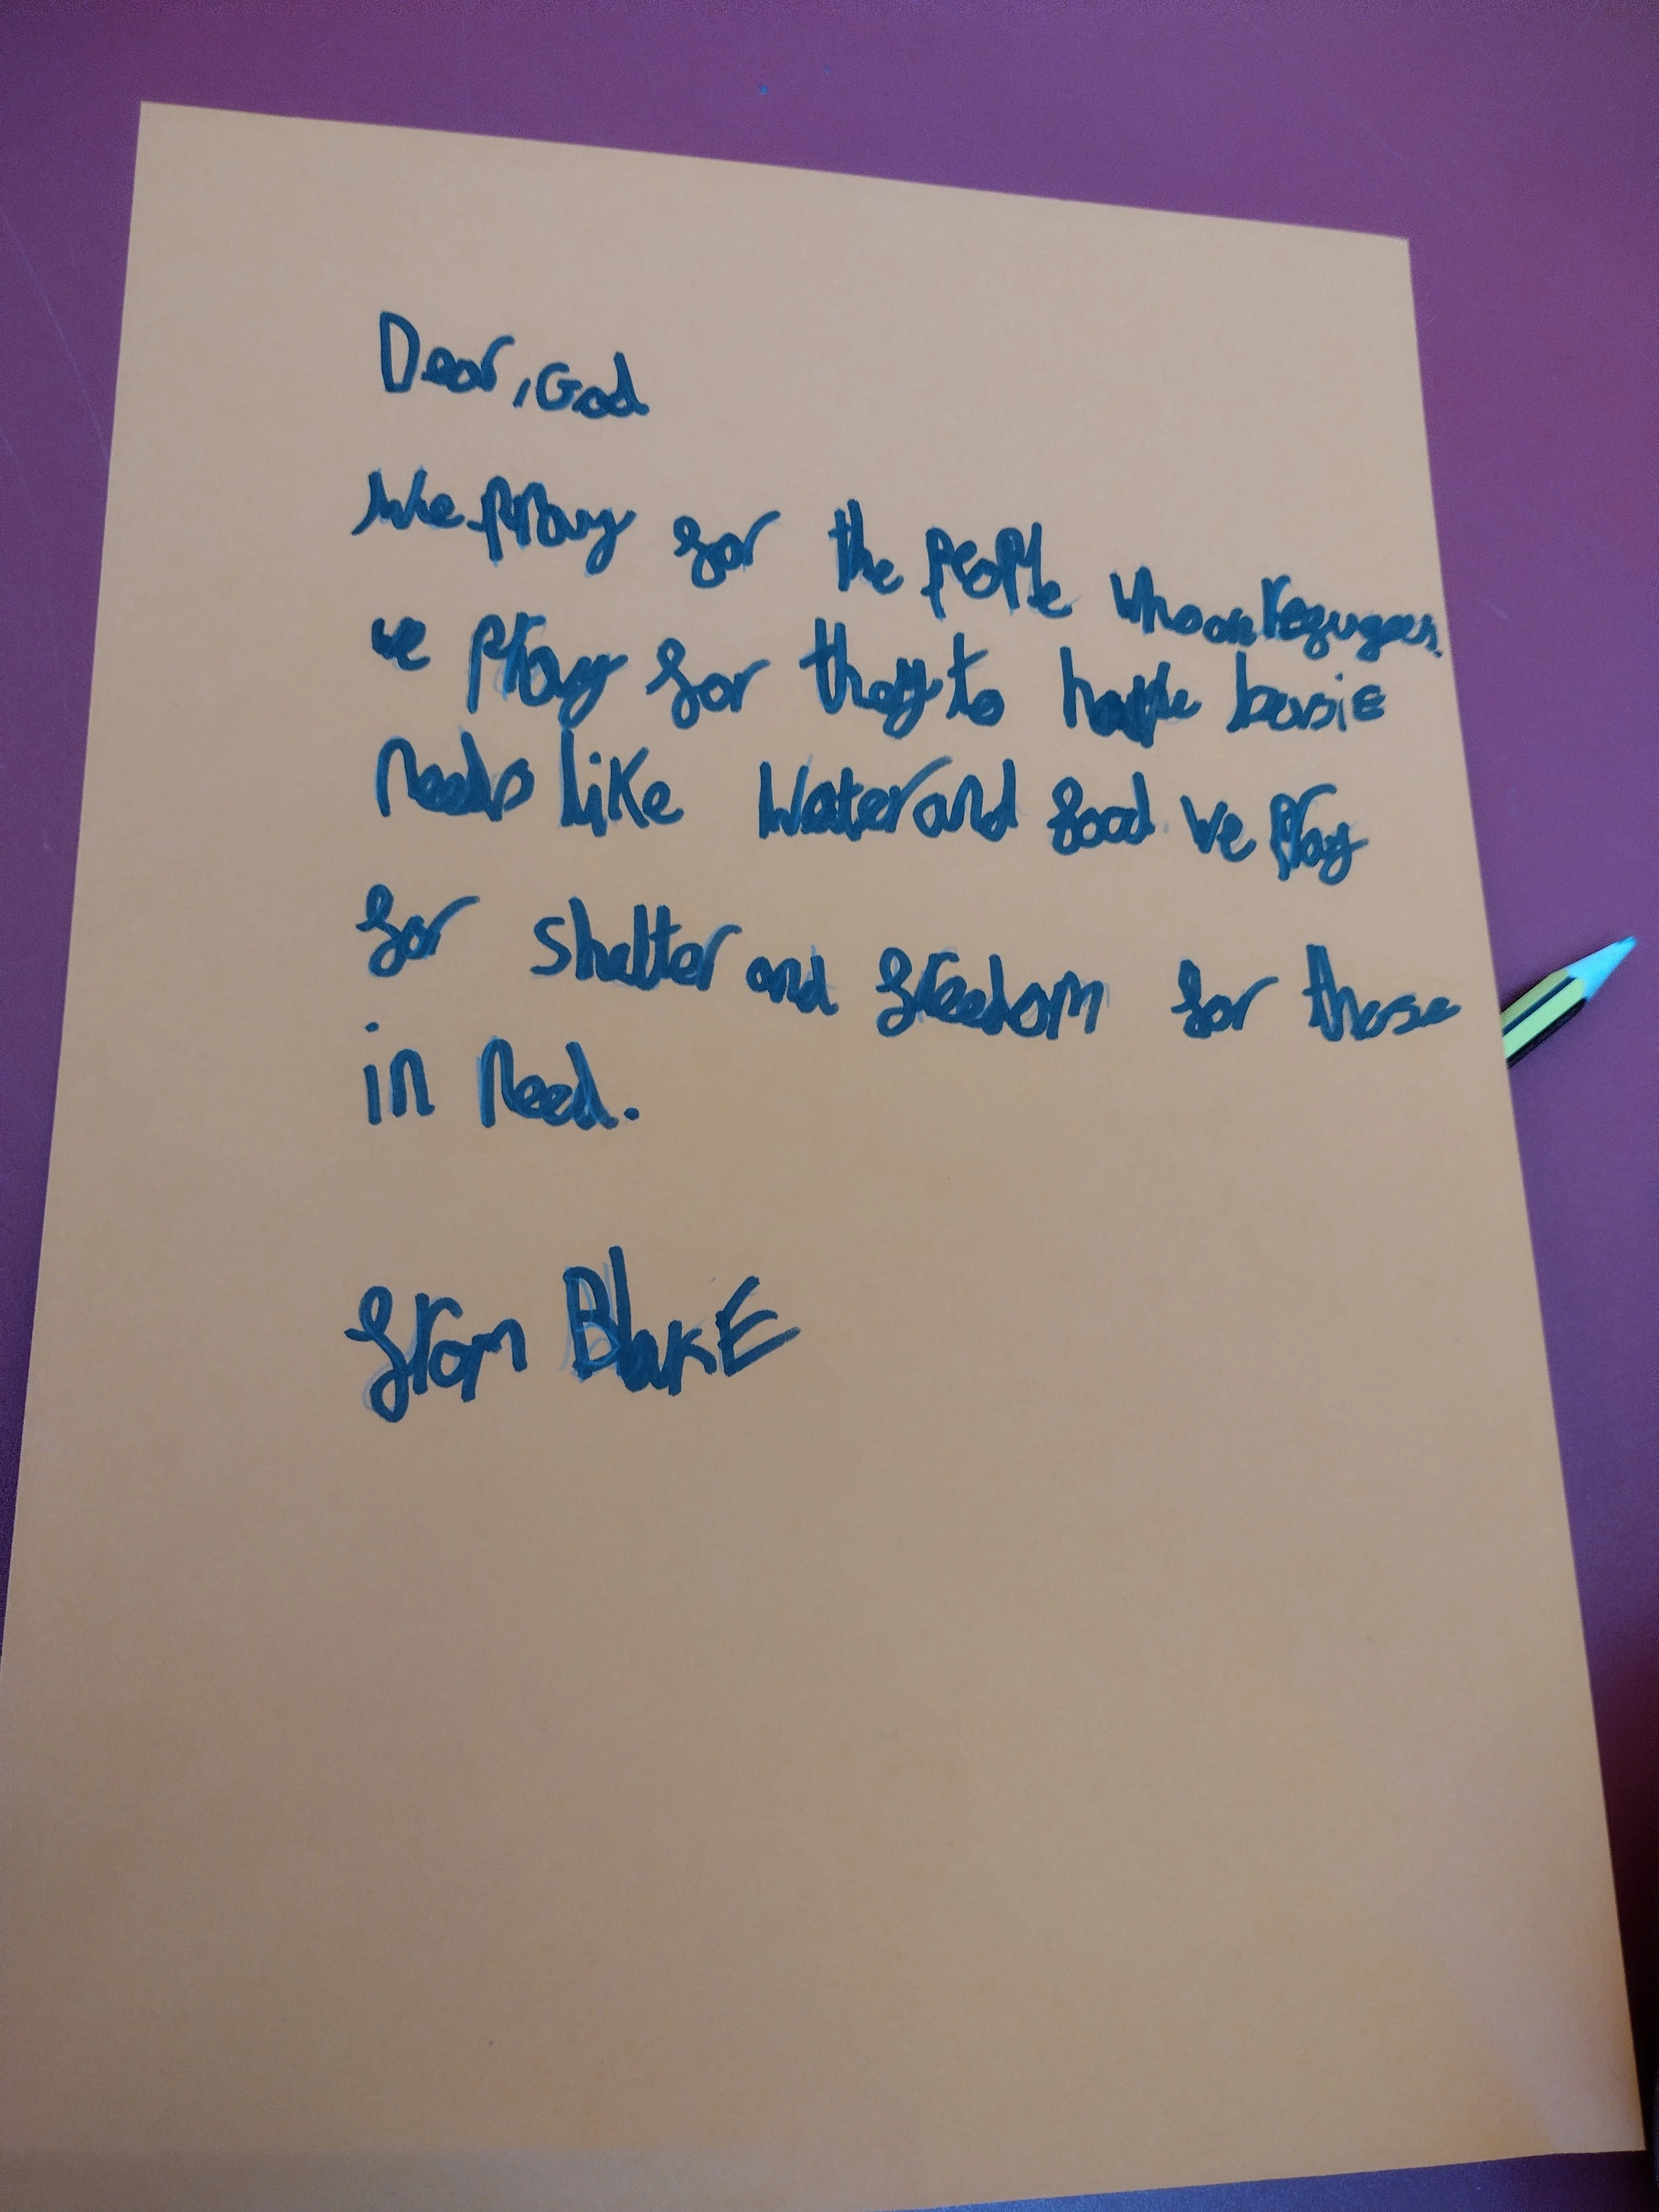 Dear, God
We pray for the people who are refugees.
we pray for they to have basic
needs like water and food we pray
for shelter and freedom for those
in need.
from BlakE